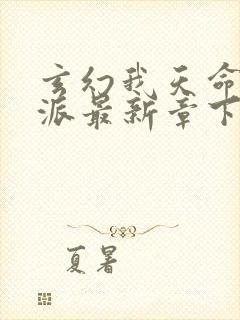 玄幻我天命
派最新章下
夏暑